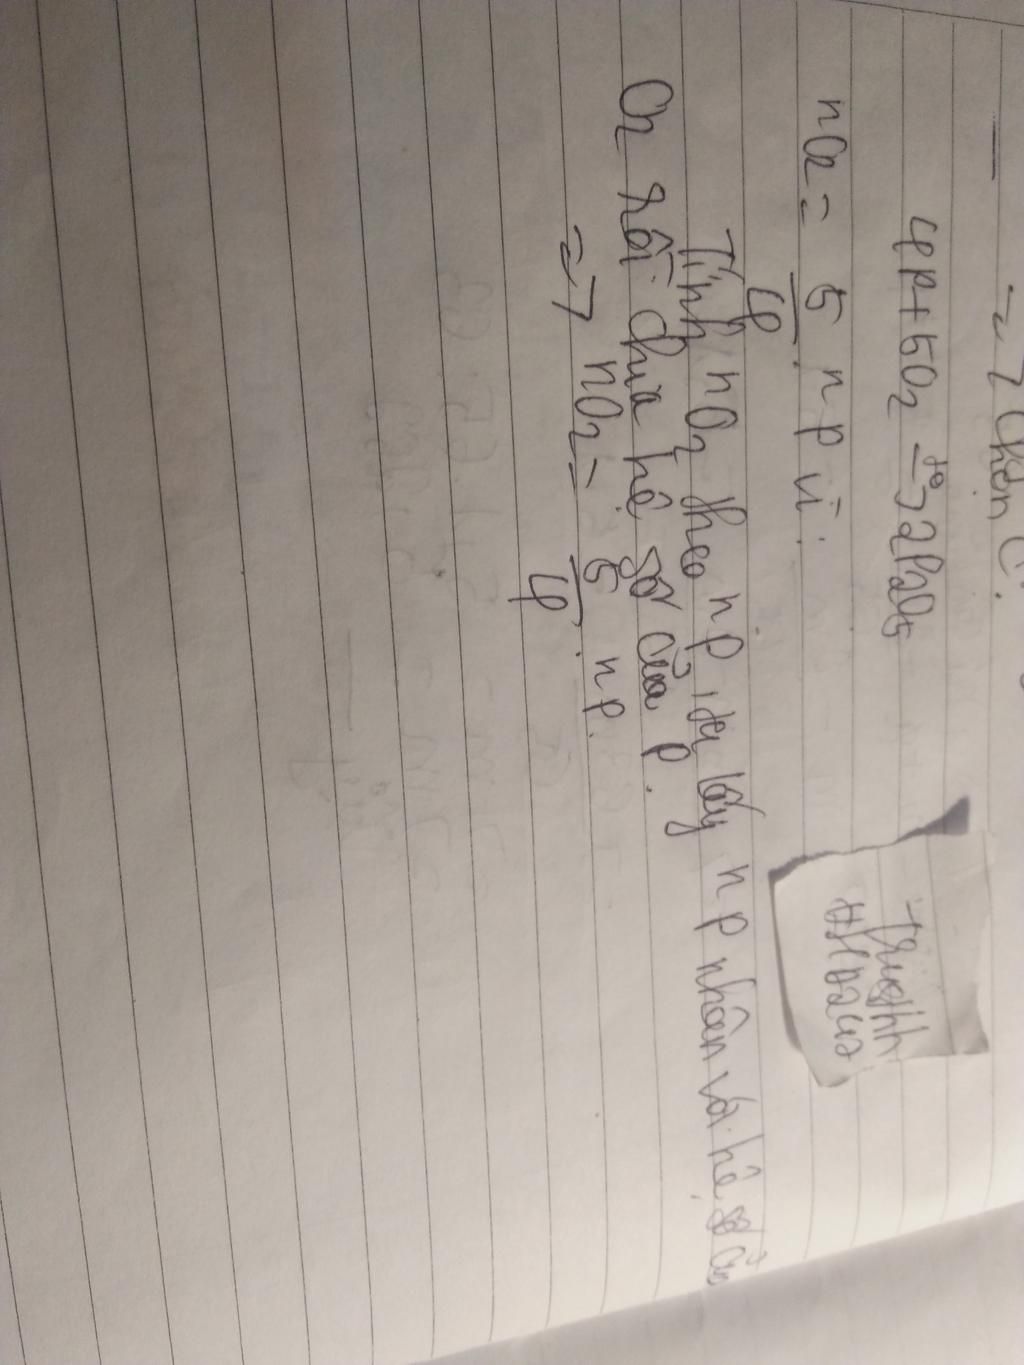 => Chọn C.
4P + 5O2 –t°–> 2P2O5
nO2 = 5/4 . nP vì:
Tính nO2 theo nP, ta lấy nP nhân với hệ số của
O2 rồi chia hệ số của P.
=> nO2 = 5/4 . nP.